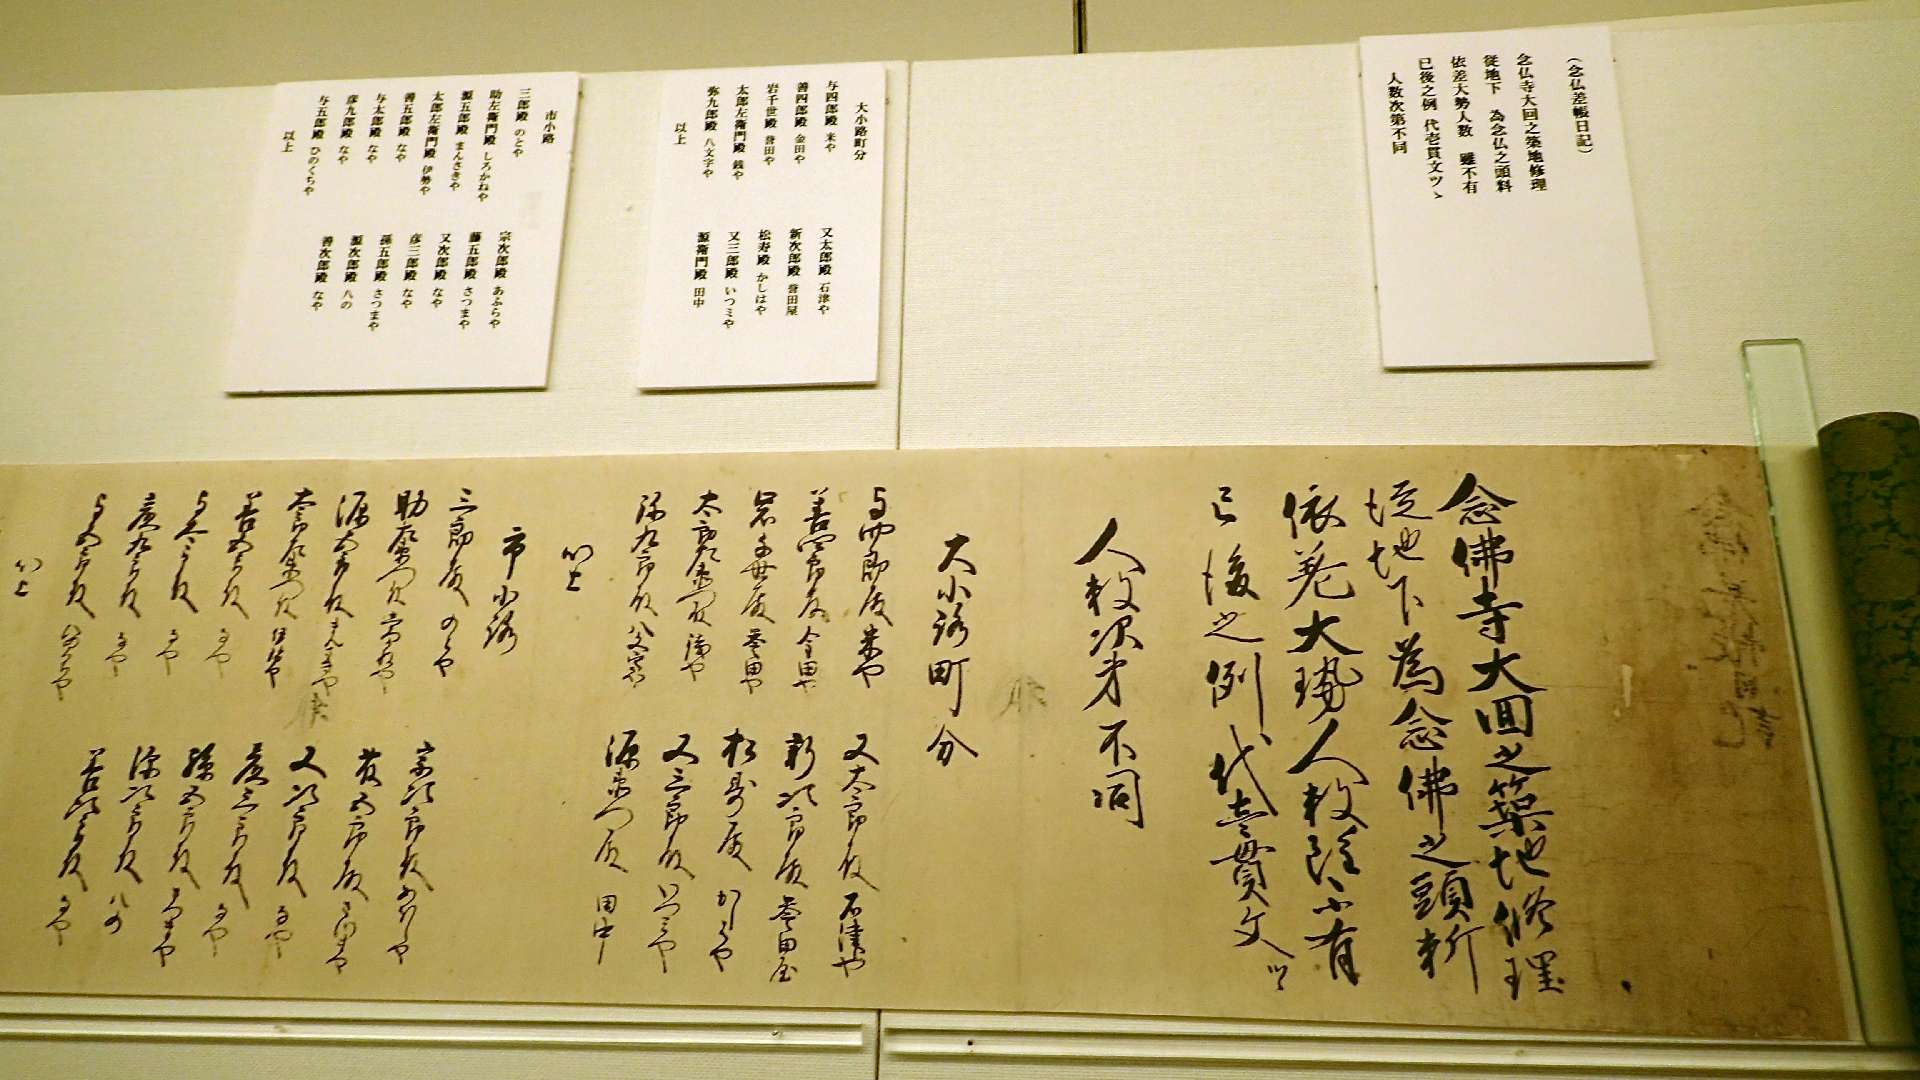 （念仏差帳日記）
念仏寺大回之築地修理
従地下　為念仏之頭料
依差大勢人数　雖不有
已後之例　代壱貫文ツヽ
人数次第不同
大小路町分
与四郎殿 米や　又太郎殿 石津や
善四郎殿 金田や　新次郎殿 誉田屋
岩千世殿 誉田や　松寿殿 かしはや
太郎左衛門殿 銭や　又三郎殿 いつミや
弥九郎殿 八文字や　源衛門殿 田中
以上
市小路
三郎殿 のとや　宗次郎殿 あふらや
助左衛門殿 しろかねや　藤五郎殿 さつまや
源五郎殿 まんさきや　又次郎殿 なや
太郎左衛門殿 伊勢や　彦三郎殿 なや
善五郎殿 なや　孫五郎殿 さつまや
与太郎殿 なや　源次郎殿 八の
彦九郎殿 なや　善次郎殿 なや
与五郎殿 ひのくちや
以上
念佛寺大回之築地修理
従地下為念佛之頭料
依差大勢人数雖不有
已後之例代壱貫文ツヽ
人数次才不同
大小路町分
与四郎殿 米や　又太郎殿 石津や
善四郎殿 金田や　新次郎殿 誉田屋
岩千世殿 誉田や　松寿殿 かしはや
太郎左衛門殿 銭や　又三郎殿 いつミや
弥九郎殿 八文字や　源衛門殿 田中
以上
市小路
三郎殿 のとや　宗次郎殿 あふらや
助左衛門殿 しろかねや　藤五郎殿 さつまや
源五郎殿 まんさきや　又次郎殿 なや
太郎左衛門殿 伊勢や　彦三郎殿 なや
善五郎殿 なや　孫五郎殿 さつまや
与太郎殿 なや　源次郎殿 八の
彦九郎殿 なや　善次郎殿 なや
与五郎殿 ひのくちや
以上